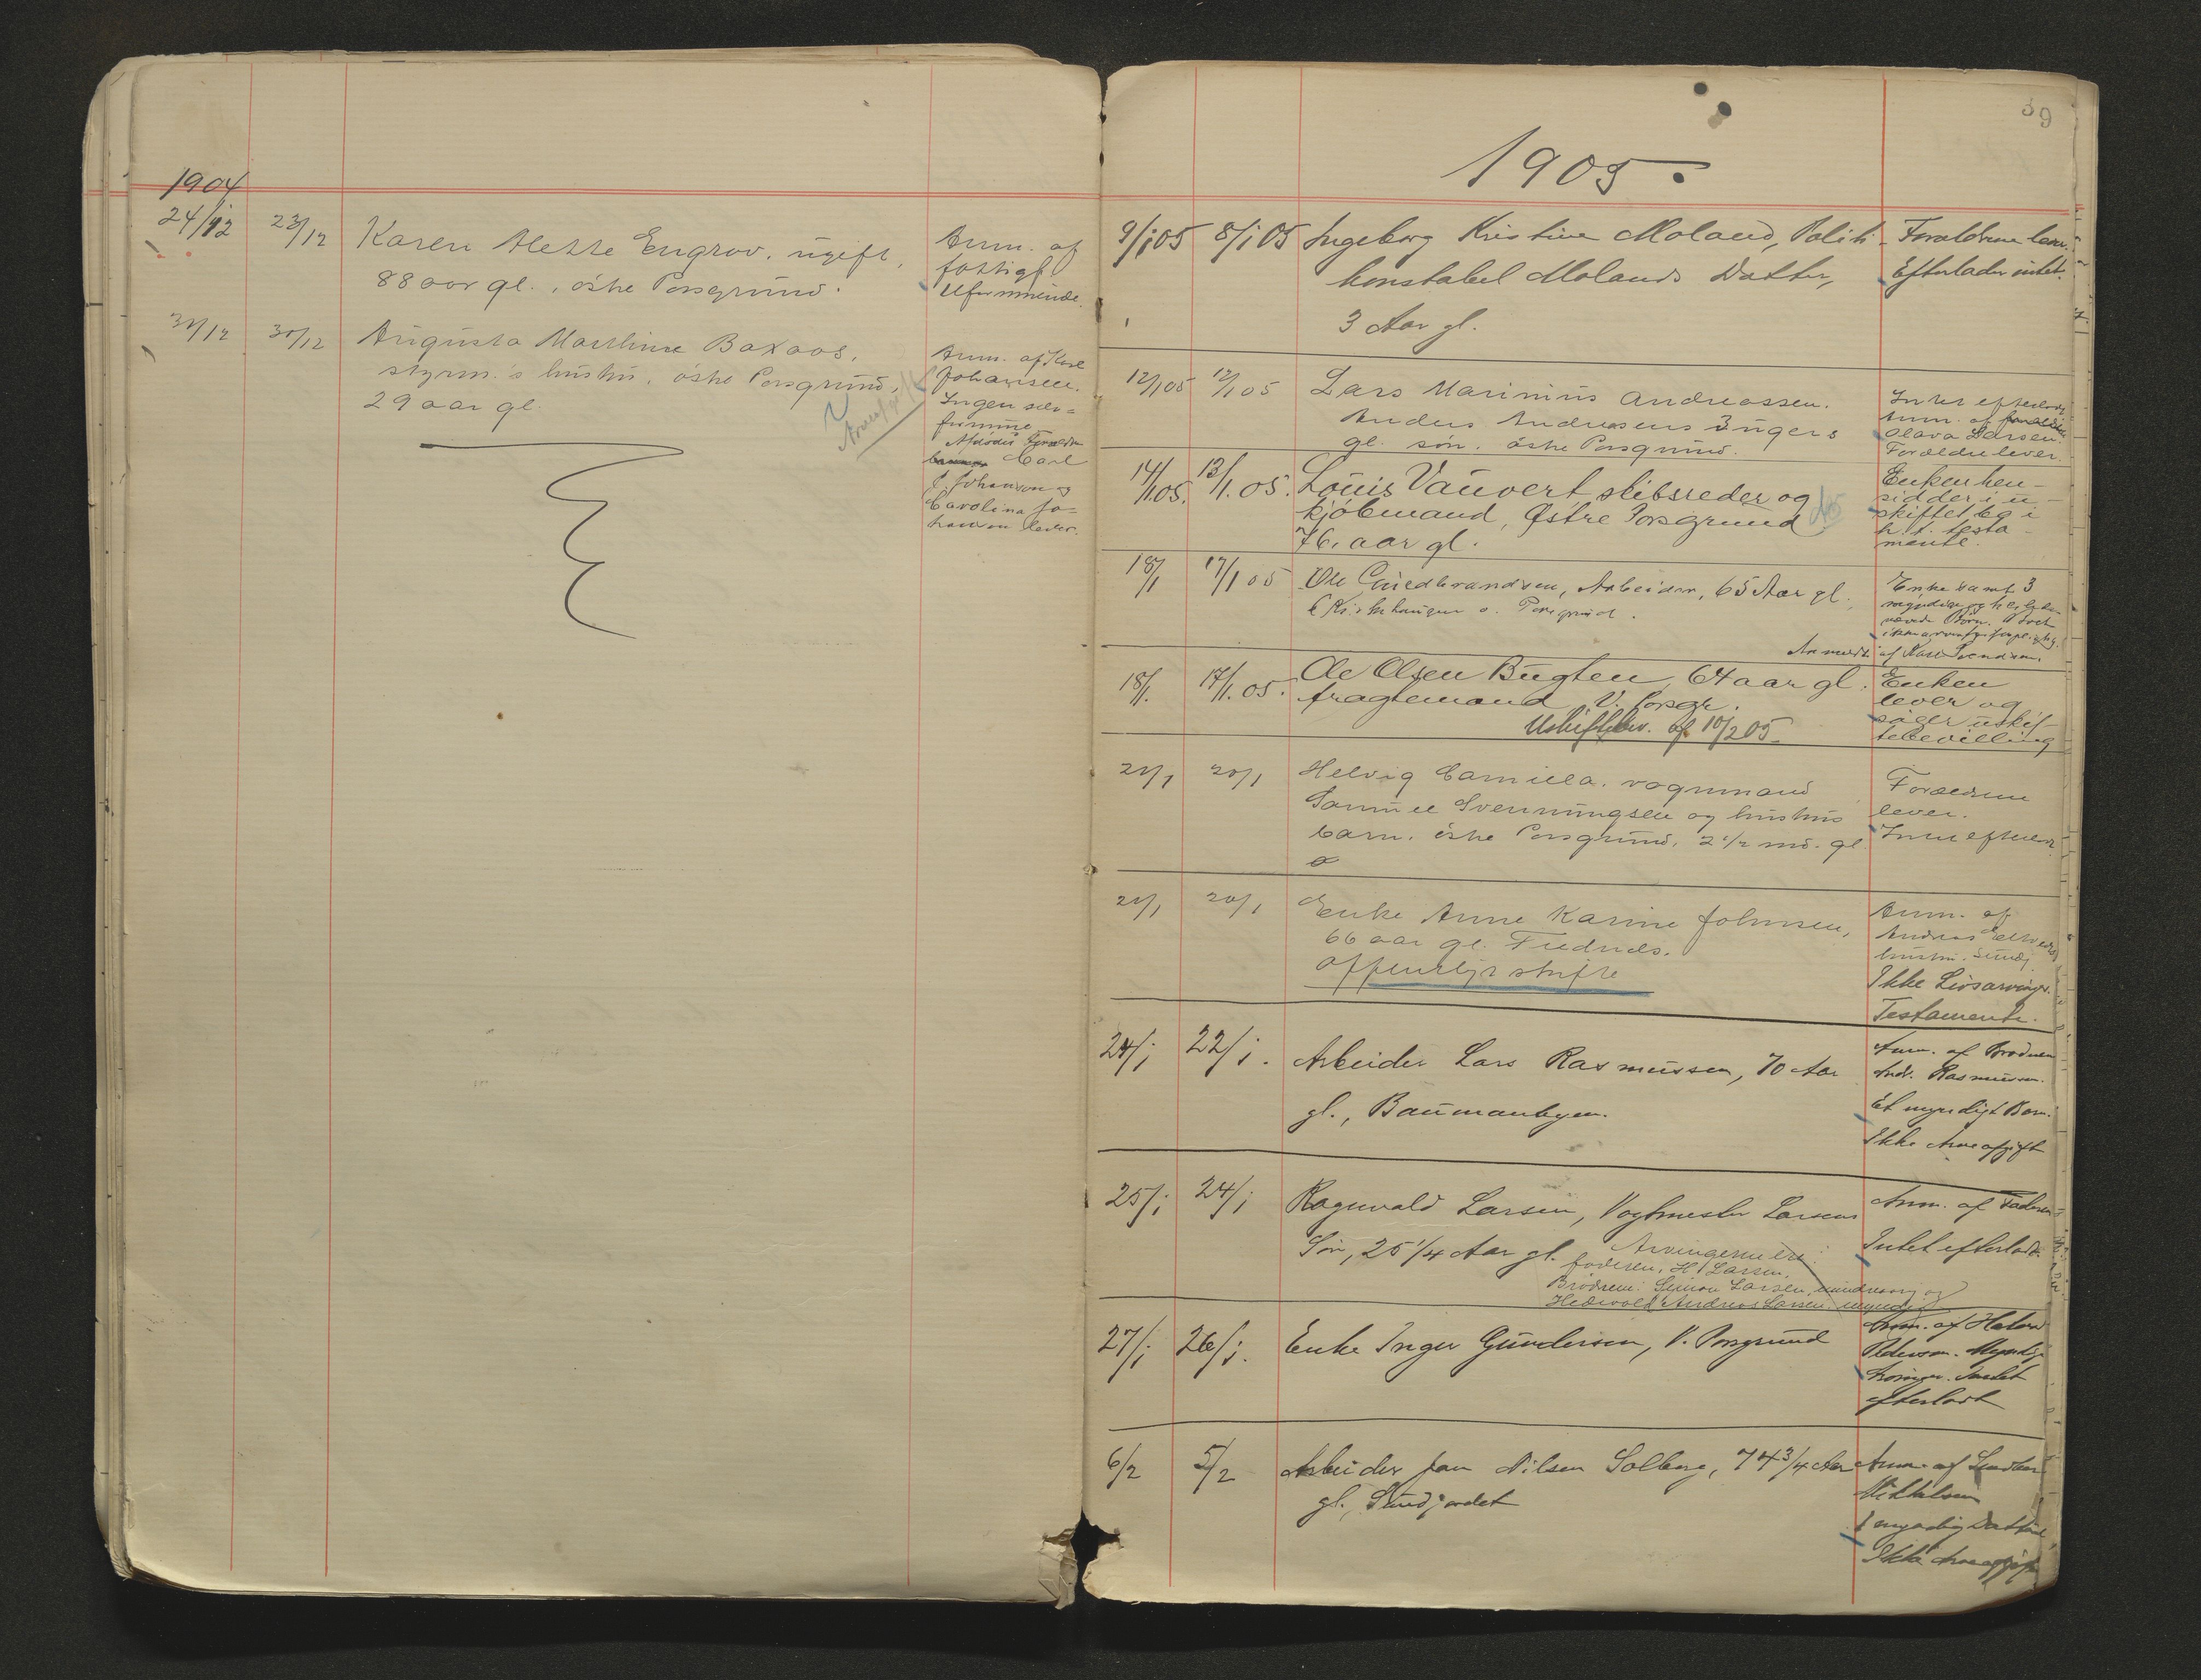 1904
24/12 23/12 Karen Alette Engrov. ugift,
88 aar gl., östre Porsgrund.
Anm. af
fattigf.
Uformuende.
31/12 30/12 Augusta Marthine Baxaas,
styrm.'s hustru, östre Porsgrund,
29 aar gl.
Anm. af
Johansen.
Ingen sær-
formue
Afdödes
Carl
J. Johansen og
Carolina Jo-
hansen lever.
39
1905.
9/1 05 8/1 05 Ingeborg Kristine Moland, Politi-
konstabel Molands Datter,
3 Aar gl.
Forældrene lever.
Efterlader intet.
12/1 05 12/1 05 Lars Marinius Andreassen.
Anders Andreasens 3 ugers
gl. søn. östre Porsgrund.
Intet efterladt.
Anm. af
Olava Larsen.
Forældre lever.
14/1 05. 13/1. 05. Louis Vauvert skibsreder og
kjöbmand, Østre Porsgrund
76. aar gl.
Enken hen-
sidder i u-
skiftet bo i
h. t. testa-
mente.
18/1 17/1 05 Ole Guldbrandsen, Arbeider, 65 Aar gl.
Kirkehaugen ö. Porsgrund.
Enke samt 3
myndige
Børn. Boet
Anmeldt af
18/1. 17/1. 05. Ole Olsen Bugten, 64 aar gl.
fragtemand V. Porsgr.
Uskiftebev. af 10/2 05.
Enken
lever og
søger uskif-
tebevilling
21/1 20/1 Helvig Camilla. vognmand
Samuel Svenningsen og hustrus
barn. östre Porsgrund, 2 1/2 md. gl.
Forældrene
lever.
Intet efterladt
21/1 20/1 Enke Anne Karine Johnsen,
66 aar gl.
Offentligt skifte
Anm. af
Andreas
hustru.
Ikke Livsarvinger.
Testamente.
24/1 22/1. Arbeider Lars Rasmussen, 70 Aar
gl., Baumanbyen.
Anm. af Broderen
Andr. Rasmussen.
Et myndigt Barn.
Ikke Arveafgift
25/1 24/1 Ragnvald Larsen, Vagtmester Larsens
Søn, 25 1/4 Aar gl. Arvingerne ere:
faderen, H. Larsen,
Brödrene: Simon Larsen, mindreaarig og
Hedevold Andreas Larsen, myndig
Anm. af Faderen
Intet efterladt.
27/1 26/1. Enke Inger Gundersen, V. Porsgrund
Anm. af
Pedersen. Myndige
Arvinger. Intet
efterladt
6/2 5/2 Arbeider Jan Nilsen Solberg, 74 3/4 Aar
gl., Sundjordet
Anm. af
Mikkelsen
1 myndig Datter
Ikke Arveafgift